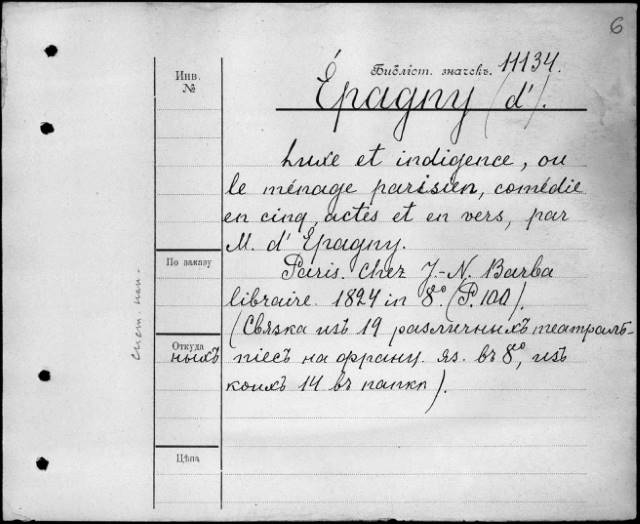 6
Инв.
№
Библіот. значекъ. 11134.
Épagny (d').
Luxe et indigence, ou
le ménage parisien, comédie
en cinq actes et en vers, par
M. d'Epagny.
По заказу
Paris. Chez J.-N. Barba
libraire. 1824 in 8º. (P. 100).
(Связка изъ 19 различныхъ театраль-
Откуда
ныхъ піесъ на франц. яз. въ 8º, изъ
коихъ 14 въ папкѣ).
Цѣна